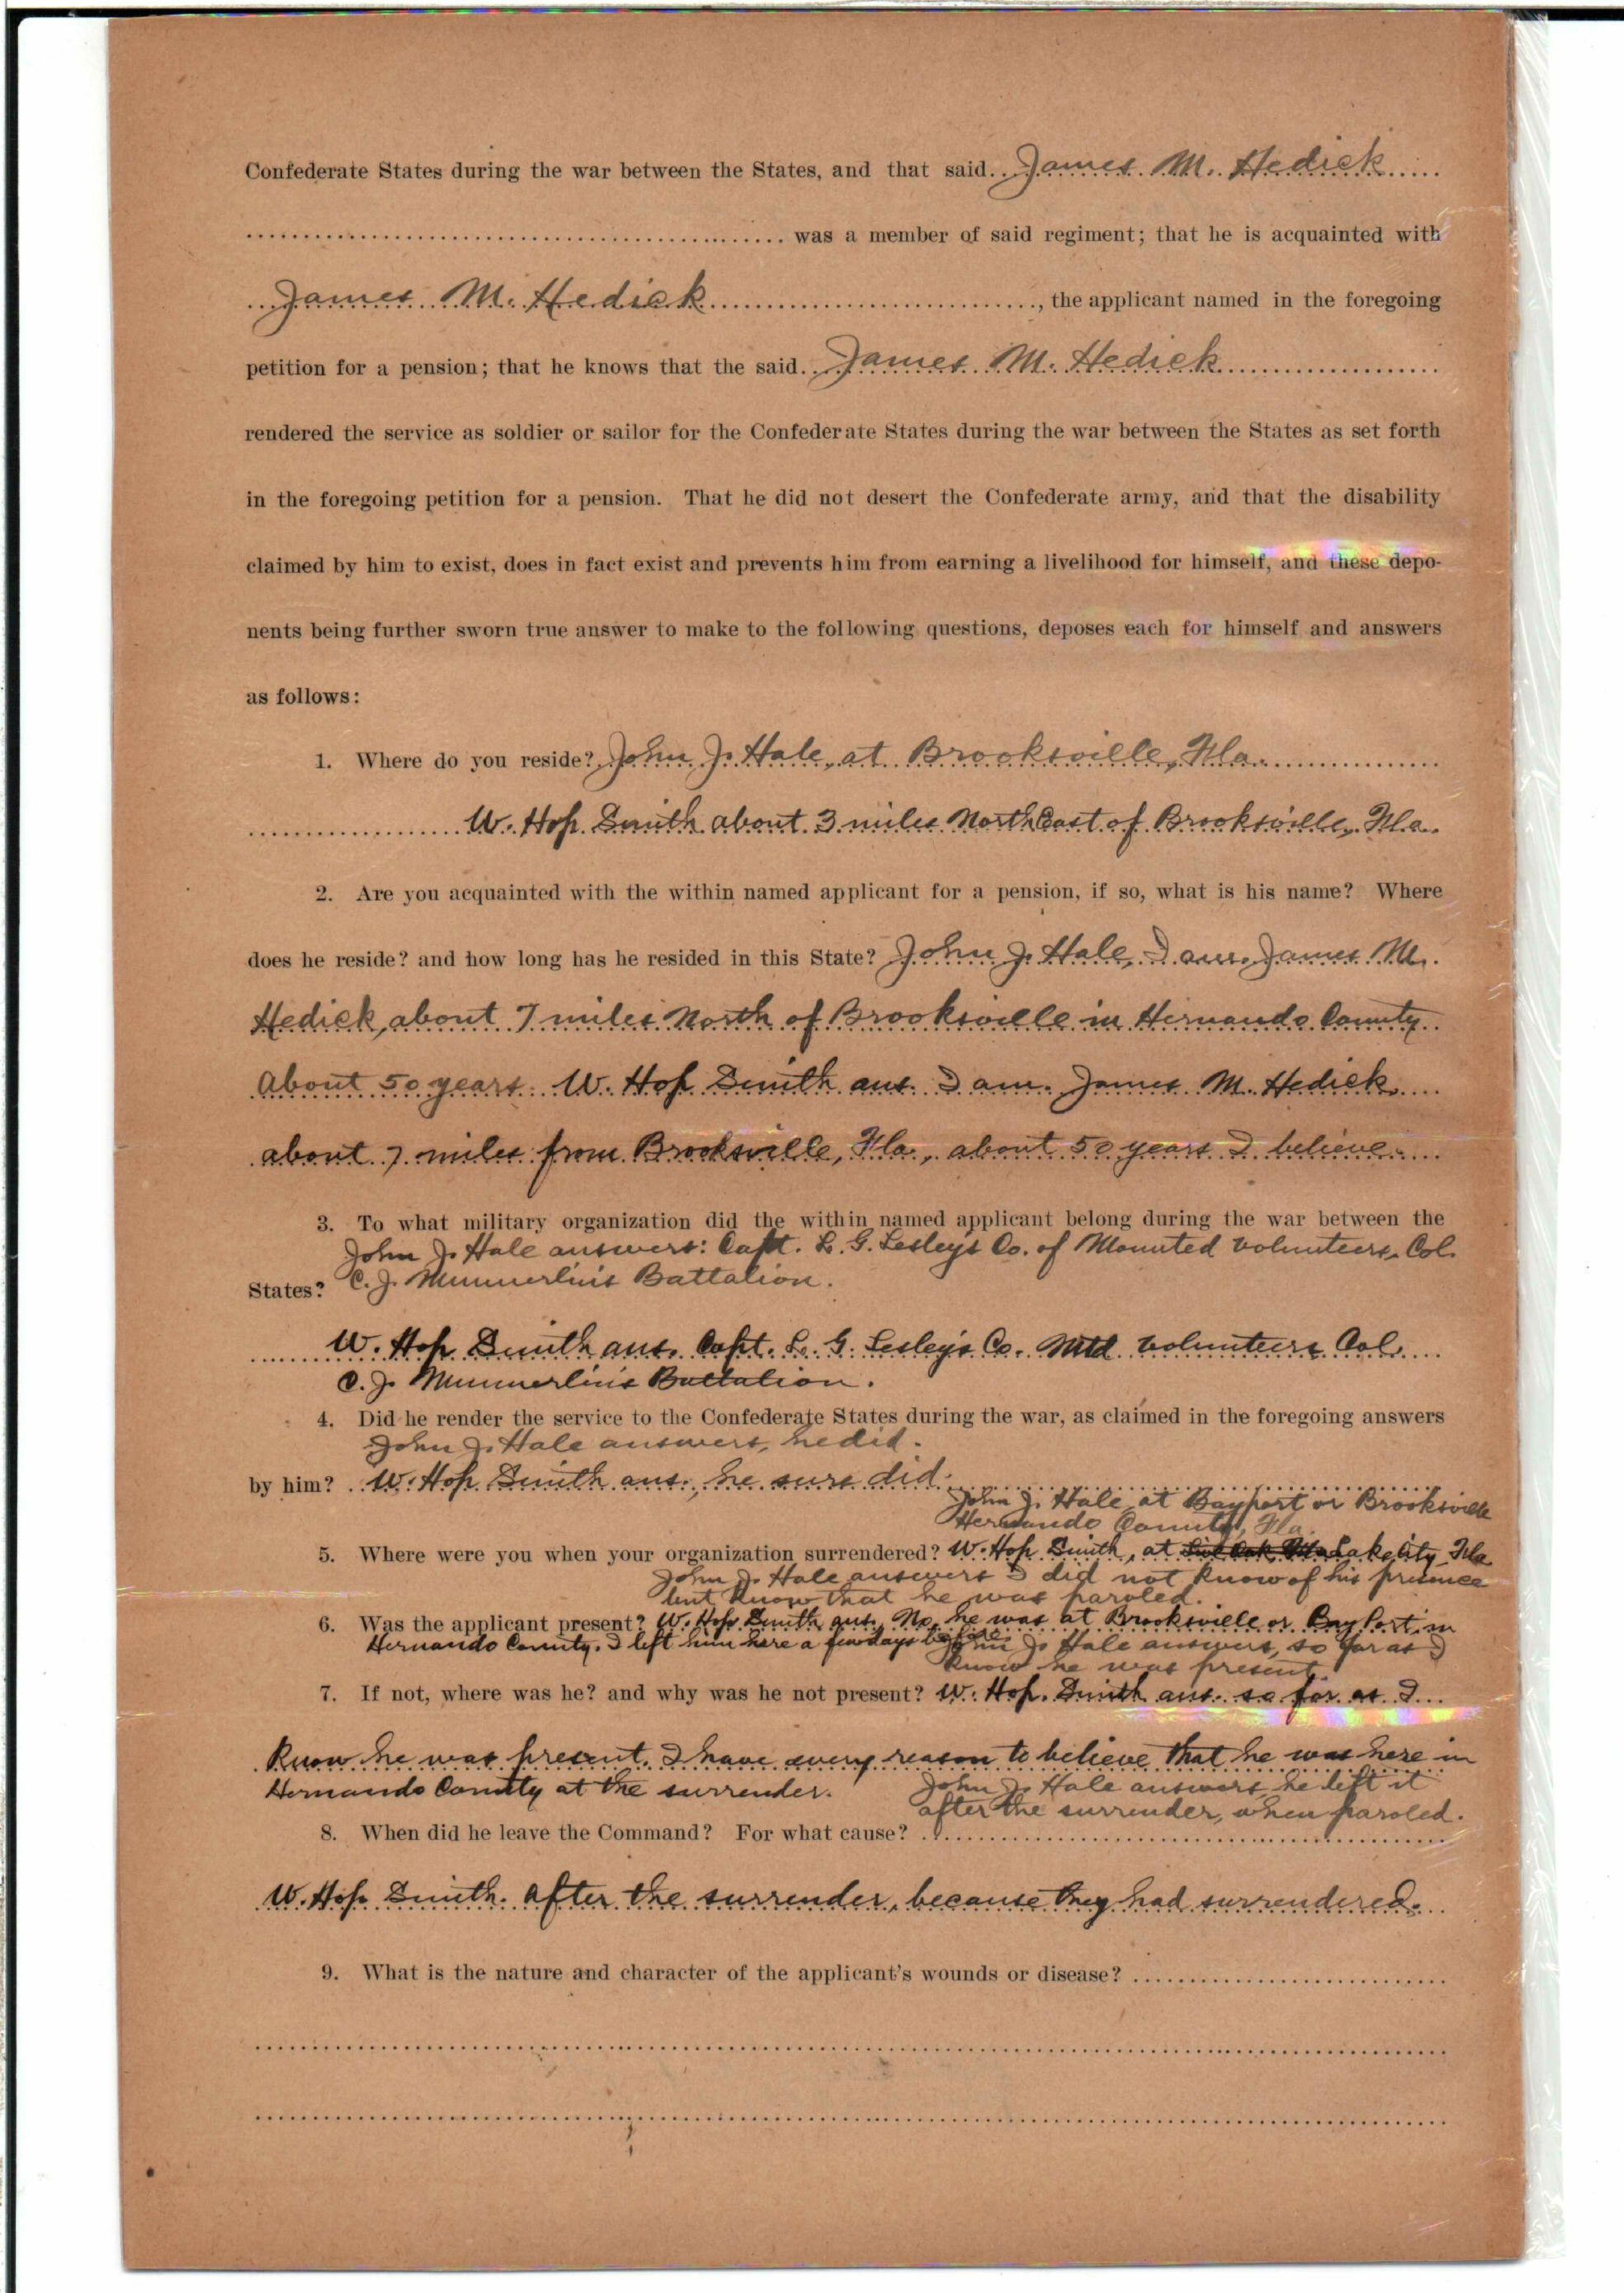 Confederate States during the war between the States, and that said James M. Hedick
was a member of said regiment; that he is acquainted with
James M. Hedick, the applicant named in the foregoing
petition for a pension; that he knows that the said James M. Hedick
rendered the service as soldier or sailor for the Confederate States during the war between the States as set forth
in the foregoing petition for a pension. That he did not desert the Confederate army, and that the disability
claimed by him to exist, does in fact exist and prevents him from earning a livelihood for himself, and these depo-
nents being further sworn true answer to make to the following questions, deposes each for himself and answers
as follows:
1. Where do you reside? John J. Hale, at Brooksville, Fla.
W. Hop Smith about 3 miles North East of Brooksville, Fla.
2. Are you acquainted with the within named applicant for a pension, if so, what is his name? Where
does he reside? and how long has he resided in this State? John J. Hale, I am. James M.
Hedick, about 7 miles North of Brooksville in Hernando County.
About 50 years. W. Hop Smith ans. I am. James M. Hedick
about 7 miles from Brooksville, Fla., about 50 years I believe.
3. To what military organization did the within named applicant belong during the war between the
John J. Hale answers: Capt. L. G. Lesley's Co. of Mounted Volunteers, Col.
States? C. J. Munnerlin's Battalion.
W. Hop Smith ans. Capt. L. G. Lesley's Co. Mtd Volunteers Col.
C. J. Munnerlin's Battalion.
4. Did he render the service to the Confederate States during the war, as claimed in the foregoing answers
John J. Hale answers, he did.
by him? W. Hop Smith ans., he sure did.
John J. Hale, at Bayport or Brooksville
Hernando County, Fla.
5. Where were you when your organization surrendered? W. Hop Smith, at Lake City Fla
John J. Hale answers I did not know of his presence
but know that he was paroled.
6. Was the applicant present? W. Hop Smith ans. No, he was at Brooksville or Bay Port in
Hernando County. I left him here a few days before.
John J. Hale answers, so far as I
know he was present.
7. If not, where was he? and why was he not present? W. Hop. Smith ans. so far as I
know he was present. I have every reason to believe that he was here in
Hernando County at the surrender.
John J. Hale answers, he left it
after the surrender, when paroled.
8. When did he leave the Command? For what cause?
W. Hop Smith. After the surrender, because they had surrendered.
9. What is the nature and character of the applicant's wounds or disease?